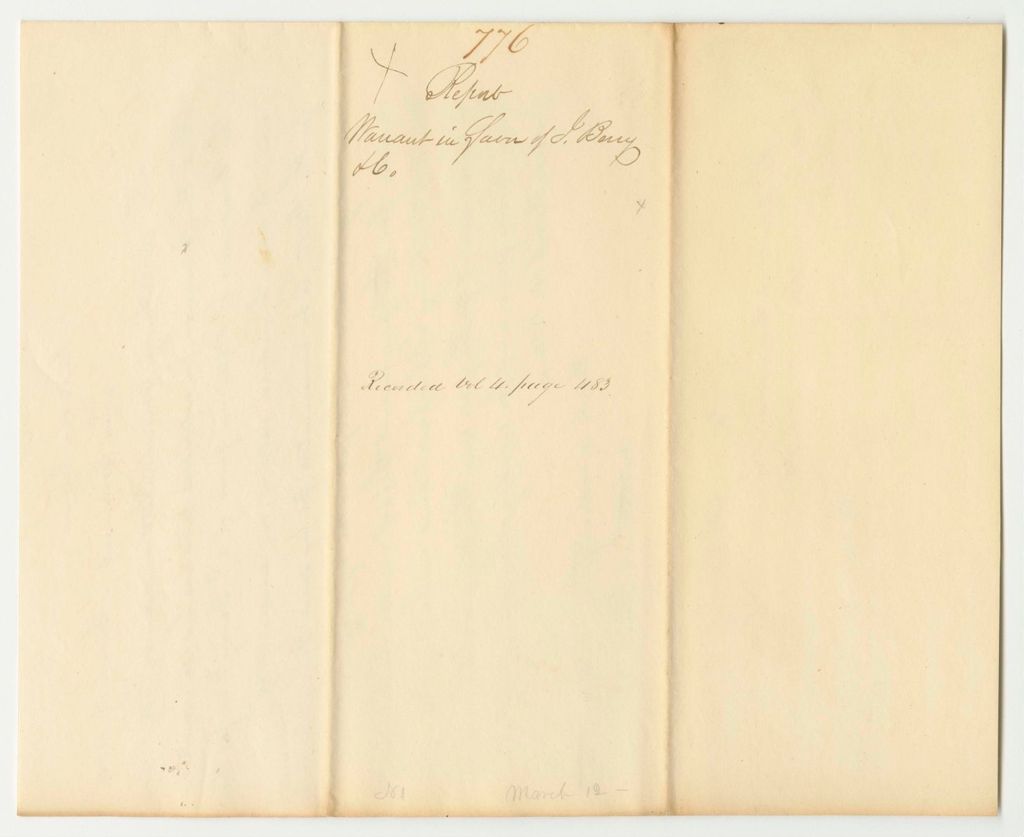 776
Report
Warrant in favor of J. Berry
&c.
Recorded Vol 4. page 483.
March 12 –